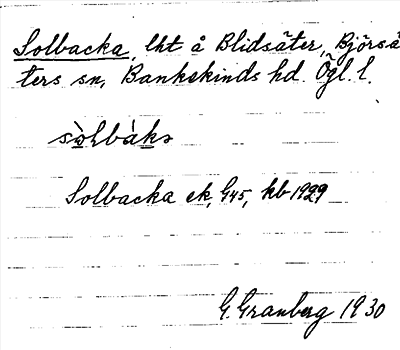 Solbacka, lht å Blidsäter, Björsä
ters sn, Bankekinds hd. Ögl. l.
sòlbàka
Solbacka ek, G45, kb 1929
G. Granberg 1930